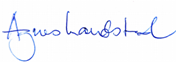 Agnes Landstad